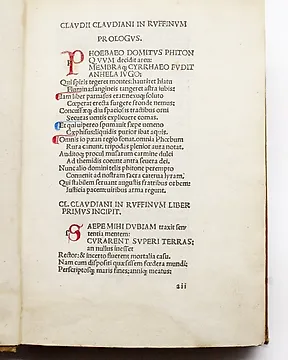 CLAVDII CLAVDIANI IN RVFFINVM
PROLOGVS.
PHOEBAEO DOMITVS PHITON
QVVM decidit arcu:
MEMBRAq; CYRRHAEO FVDIT
ANHELA IVGO;
Qui spiris tegeret montes: hauriret hiatu
Flumina: sanguineis tangeret astra iubis:
Iam liber parnasus erat: nexuque soluto
Coeperat erecta surgere fronde nemus:
Concussaeq; diu spaciosis tractibus orni
Securas uentis explicuere comas.
Et qui uipereo spumauit saepe ueneno
Cephisus liquidis purior ibat aquis.
Omnis io paean regio sonat. omnia Phoebum
Rura canunt. tripodas plenior aura rotat.
Auditoq; procul musarum carmine dulci
Ad themidis coeunt antra seuera dei.
Nunc alio domini telis phitone perempto
Conuenit ad nostram sacra caterua lyram,
Qui stabilem seruans augustis fratribus orbem:
Iusticia pacem: uiribus arma regunt.
CL. CLAVDIANI IN RVFFINVM LIBER
PRIMVS INCIPIT.
SAEPE MIHI DVBIAM traxit sen
tentia mentem:
CVRARENT SVPERI TERRAS;
an nullus inesset
Rector: & incerto fluerent mortalia casu.
Nam cum dispositi quaesissem foedera mundi:
Perscriptosq; maris fines: annisq; meatus:
aii